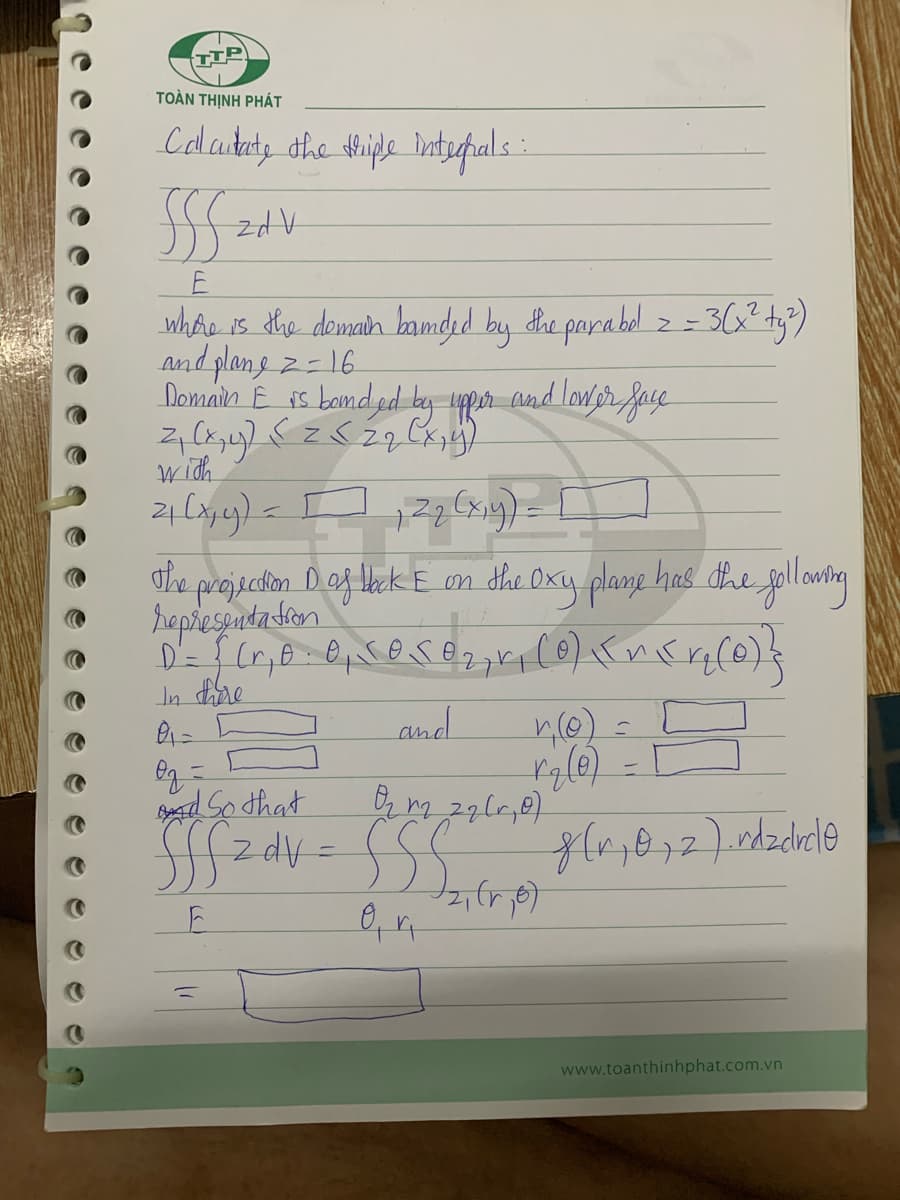 TTP
TOÀN THỊNH PHÁT
Calculate the triple integrals:
∭ zdV
E
where is the domain bamded by the parabol z = 3(x² + y²)
and plane z = 16
Domain E is bomded by upper and lower face
z₁(x,y) ≤ z ≤ z₂(x,y)
with
z₁(x,y) = , z₂(x,y) =
the projection D of block E on the Oxy plane has the following
representation
D = {(r,θ : θ₁ ≤ θ ≤ θ₂, r₁(θ) ≤ r ≤ r₂(θ)}
In there
θ₁ = and r₁(θ) =
θ₂ = r₂(θ) =
So that θ₂ r₂ z₂(r,θ)
∭ zdV = ∫∫∫ f(r,θ,z).rdzdrdθ
E θ₁ r₁ z₁(r,θ)
=
www.toanthinhphat.com.vn